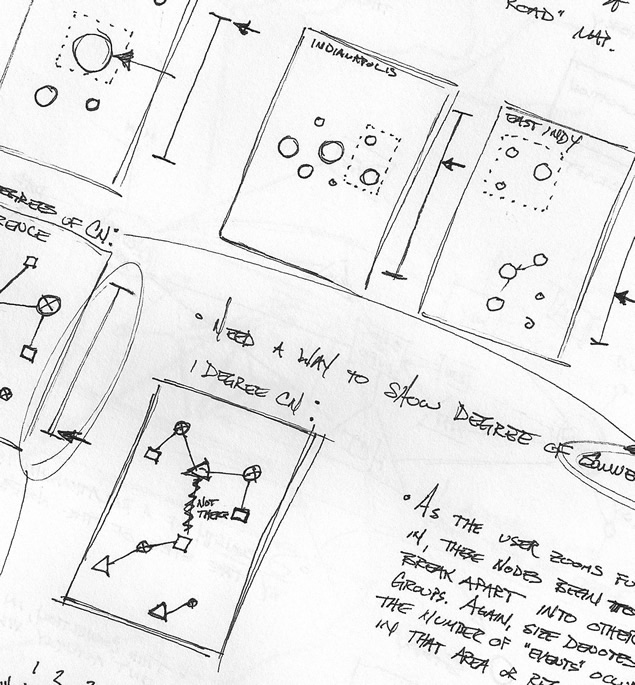 OF
ROAD" MAP.
INDIANAPOLIS
EAST INDY
DEGREES OF CN:
RENCE
• NEED A WAY TO SHOW DEGREE OF CONNE
1 DEGREE CN:
NOT
THERE
• AS THE USER ZOOMS FU
IN, THESE NODES BEGIN TO
BREAK APART INTO OTHER
GROUPS. AGAIN, SIZE DENOTES
THE NUMBER OF "EVENTS" OCCU
IN THAT AREA OR
1 2